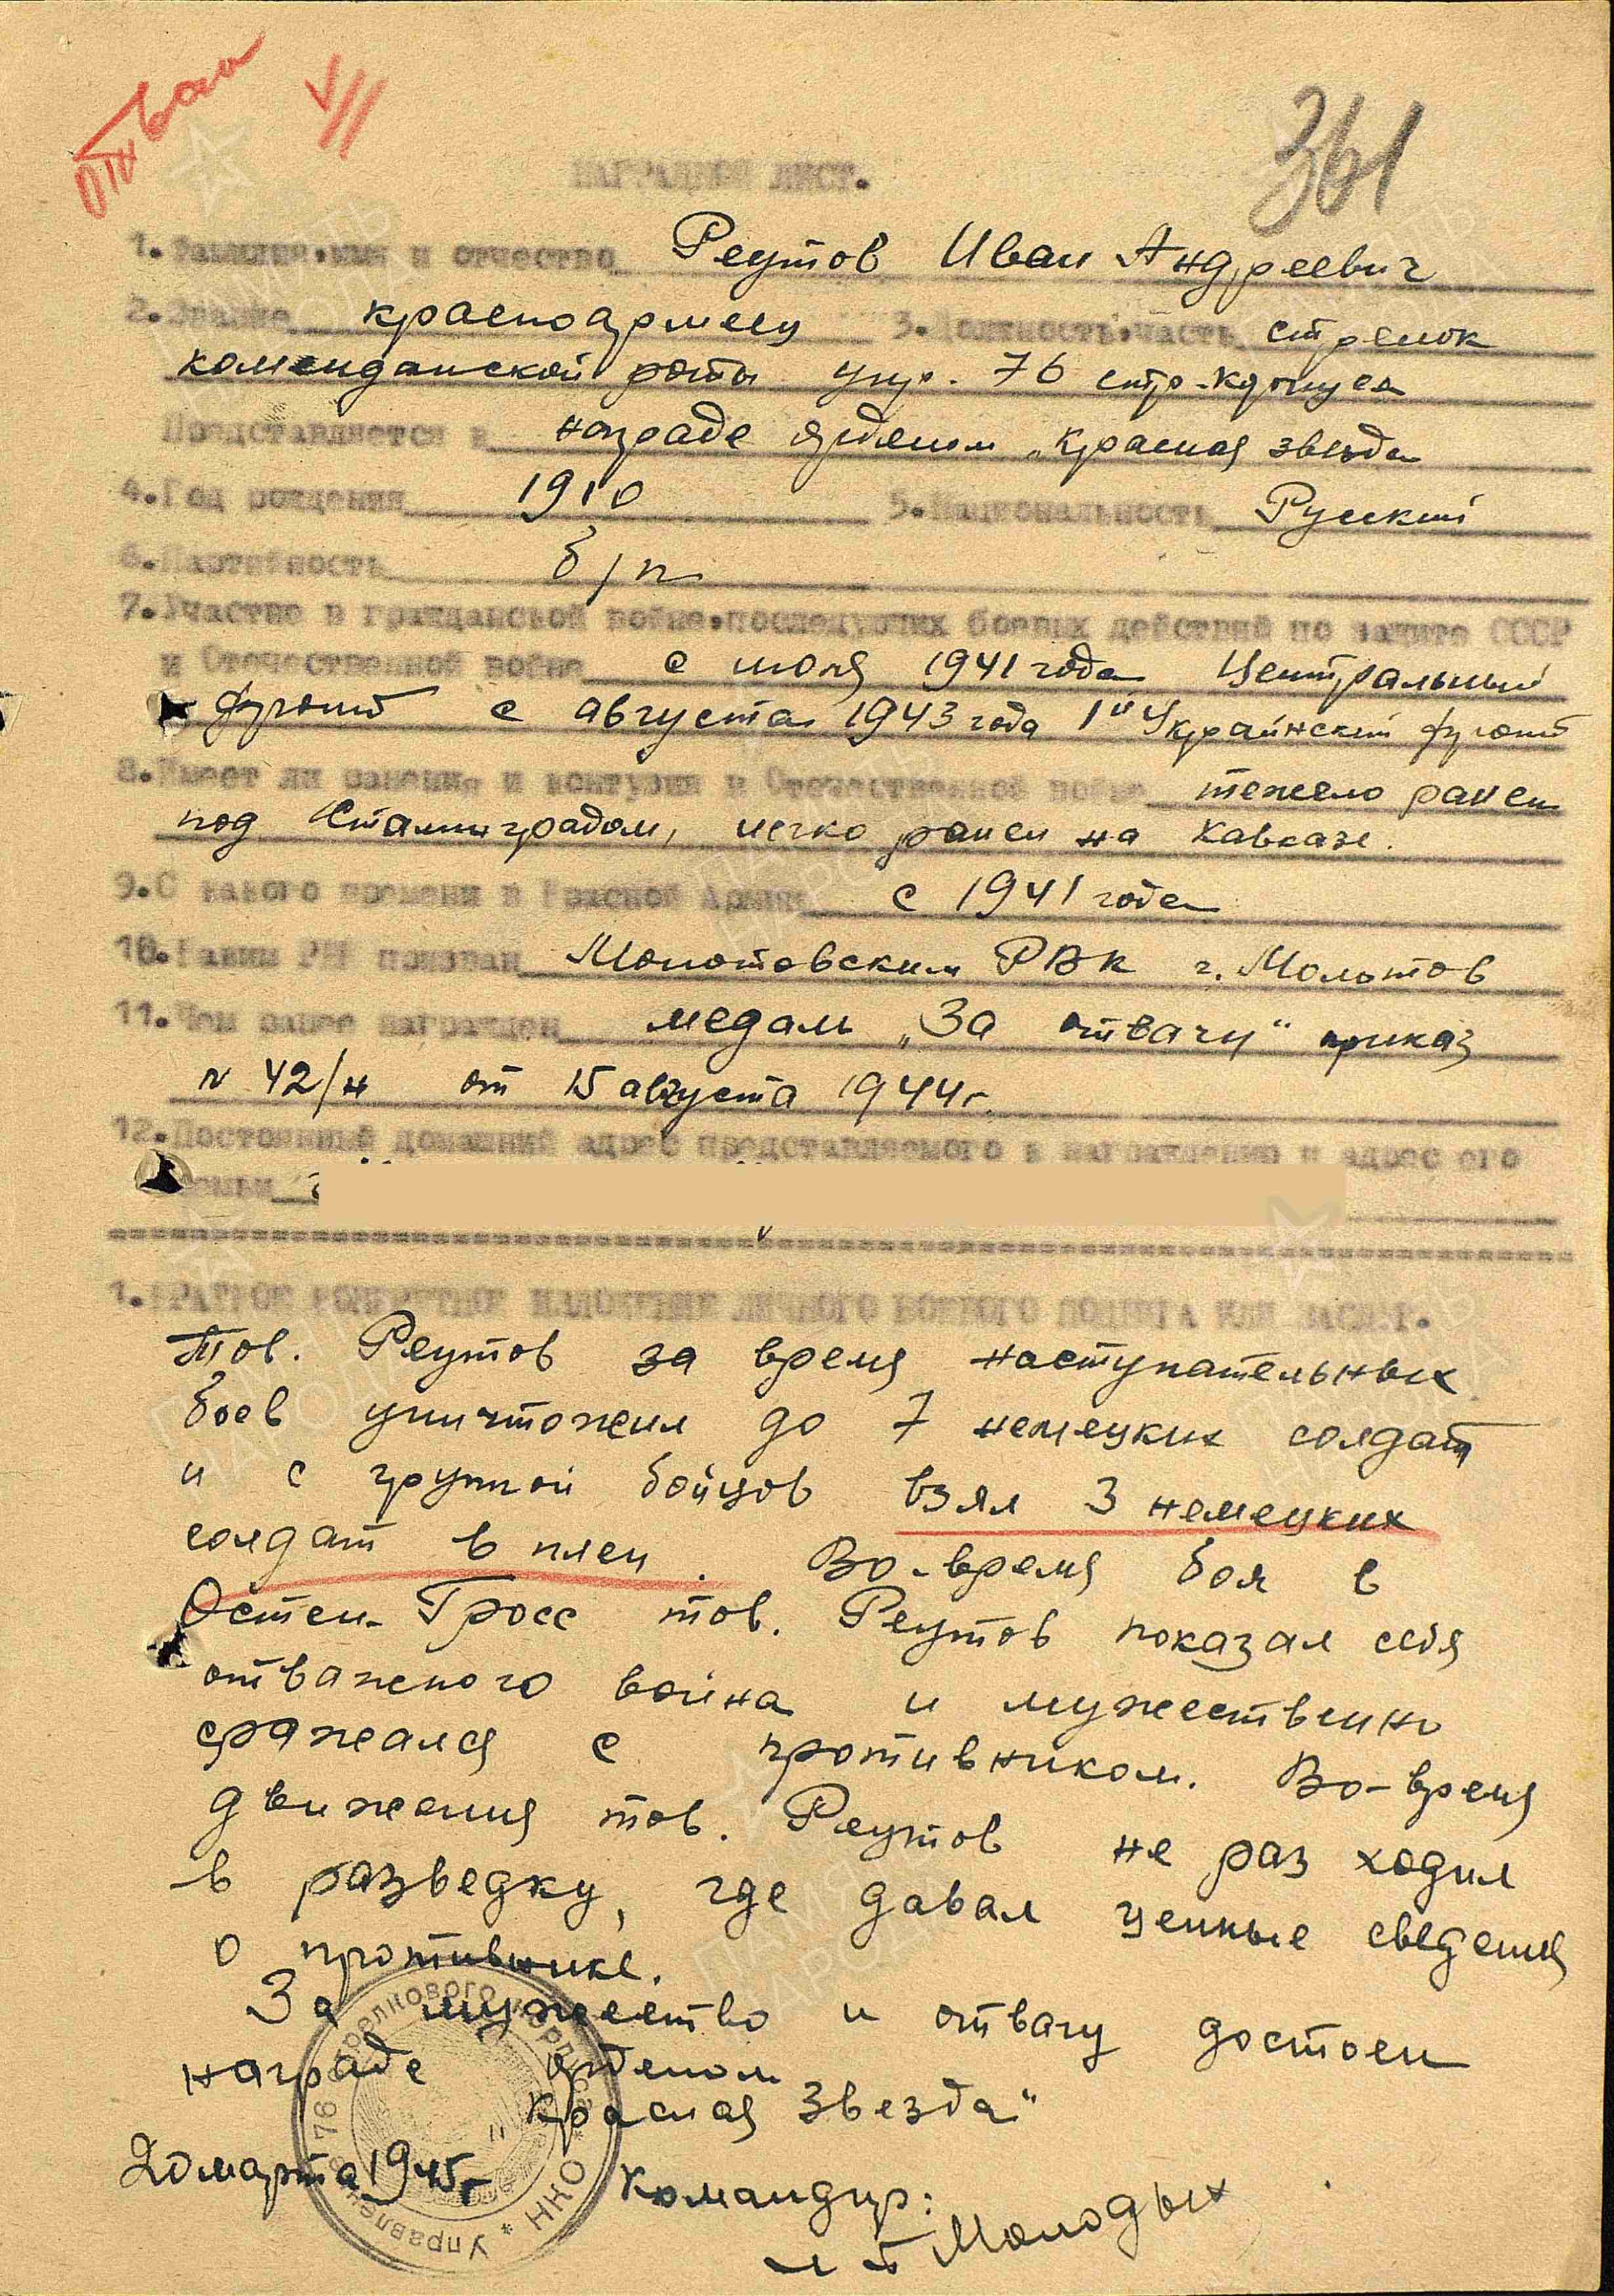 отвага VII
361
НАГРАДНОЙ ЛИСТ.
1. Фамилия, имя и отчество Реутов Иван Андреевич
2. Звание красноармеец 3. Должность, часть стрелок
комендантской роты упр. 76 стр. корпуса
Представляется к награде орденом „Красная звезда
4. Год рождения 1910 5. Национальность Русский
6. Партийность б/п
7. Участие в гражданской войне, последующих боевых действий по защите СССР
и Отечественной войне с июля 1941 года Центральный
фронт с августа 1943 года 1й Украинский фронт
8. Имеет ли ранения и контузии в Отечественной войне тежело ранен
под Сталинградом, легко ранен на Кавказе.
9. С какого времени в Красной Армии с 1941 года
10. Каким РВК призван Молотовским РВК г. Молотов
11. Чем ранее награжден медаль „За отвагу“ приказ
N 42/н от 15 августа 1944 г.
12. Постоянный домашний адрес представляемого к награждению и адрес его
семьи
1. КРАТКОЕ КОНКРЕТНОЕ ИЗЛОЖЕНИЕ ЛИЧНОГО БОЕВОГО ПОДВИГА ИЛИ ЗАСЛУГ.
Тов. Реутов за время наступательных
боев уничтожил до 7 немецких солдат
и с групой бойцов взял 3 немецких
солдат в плен. Во-время боя в
Остен-Гросс тов. Реутов показал себя
отважного война и мужественно
сражался с противником. Во-время
движения тов. Реутов не раз ходил
в разведку, где давал ценные сведения
о противнике.
За мужество и отвагу достоен
награде орденом
„Красная Звезда“
20 марта 1945 г Командир:
Молодых
Управление 76 стрелкового корпуса * НКО *